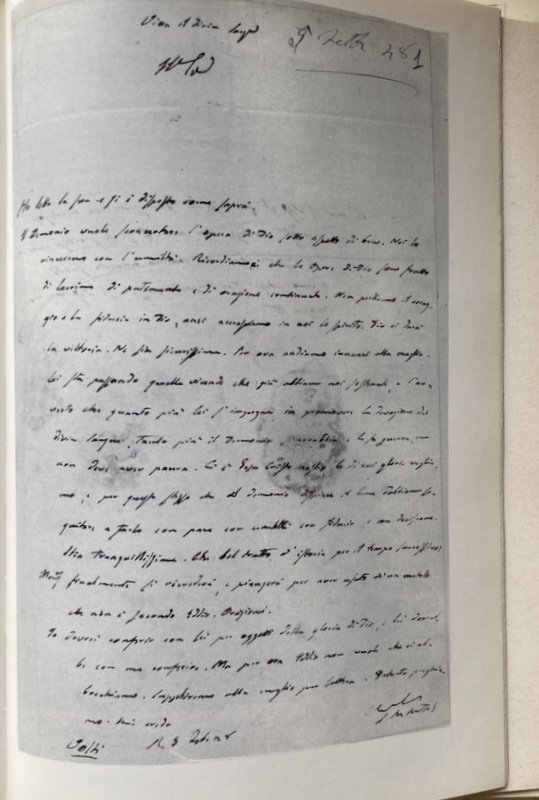 Viva il divin Sangue
5 Febb. 481
Ho letto la sua e si è disposto come saprà.
Il Demonio vuole sconcertare l'opera di Dio sotto aspetto di bene. Noi lo
vinceremo con l'umiltà. Ricordiamoci che le Opere di Dio sono frutto
di lacrime di patimento e di orazione continuata. Non perdiamo il corag
gio e la fiducia in Dio, anzi accresciamo in noi lo spirito. Dio ci darà
la vittoria. Ne sia sicurissima. Per ora andiamo innanzi alla meglio.
Lei sta passando quelle vicende che già abbiamo noi sofferte, e l'av
verto che quanto più lei s'impegna in promuovere la divozione del
divin Sangue, tanto più il Demonio e le fa guerra, ma
non deve aver paura. Ci è Gesù Cristo la di cui gloria voglia
mo, e per questo stesso che il demonio il bene dobbiamo se
guitare a farlo con pace con umiltà con fiducia e con
Stia tranquillissima. Che bel tratto d'istoria per il tempo successivo;
finalmente si ricrederà, e piangerà per aver usato di un metodo
che non è secondo Iddio. Orazione.
Io dovrei conferir con lei per oggetti della gloria di Dio, e lei dovreb
be con me conferire. Ma per ora Iddio non vuole che ci ab
bocchiamo. Suppliremo alla meglio per lettera. Quanto preghia
mo. mi creda
Volti